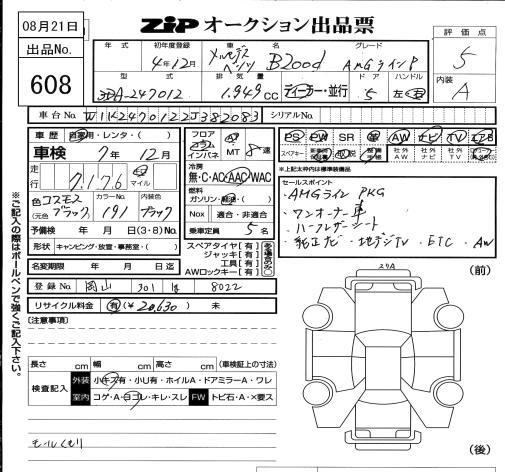 08月21日
ZiP オークション出品票
出品No.
608
年式
初年度登録
4年12月
車名
メルセデスベンツ B200d
グレード
AMGラインP
評価点
5
型式
3DA-247012
排気量
1.949cc
ディーラー・並行
ドア
5
ハンドル
左・右
内装
A
車台No.
W1K2470122J382083
シリアルNo.
車歴
自家用・レンタ・( )
車検
7年12月
走行
7,176
マイル
色
コスモスブラック
(元色 )
カラーNo.
191
内装色
ブラック
予備検 年 月 日(3・8)No.
形状 キャンピング・放宣・事務室・( )
名変期限 年 月 日迄
フロア
コラム
インパネ
MT 8速
冷房
無・C・AC・AAC・WAC
燃料
ガソリン・軽油・( )
Nox 適合・非適合
乗車定員 5名
スペアタイヤ[有]
ジャッキ[有]
工具[有]
AWロックキー[有]
PS PW SR 革 AW ナビ TV エアB
社外AW 社外ナビ 社外TV
※上記太枠内は標準装備品
セールスポイント
・AMGライン PKG
・ワンオーナー車
・ハーフレザーシート
・純正ナビ・地デジTV・ETC・AW
登録No. 岡山 301 8022
リサイクル料金 有(¥20,630) 未
[注意事項]
長さ cm 幅 cm 高さ cm (車検証上の寸法)
検査記入
外装 小キズ有・小U有・ホイルA・ドアミラーA・ワレ
室内 コゲ・A・ヨゴレ・キレ・スレ FW トビ石・A・×要ス
モールくもり
(前)
(後)
※ご記入の際はボールペンで強くご記入下さい。